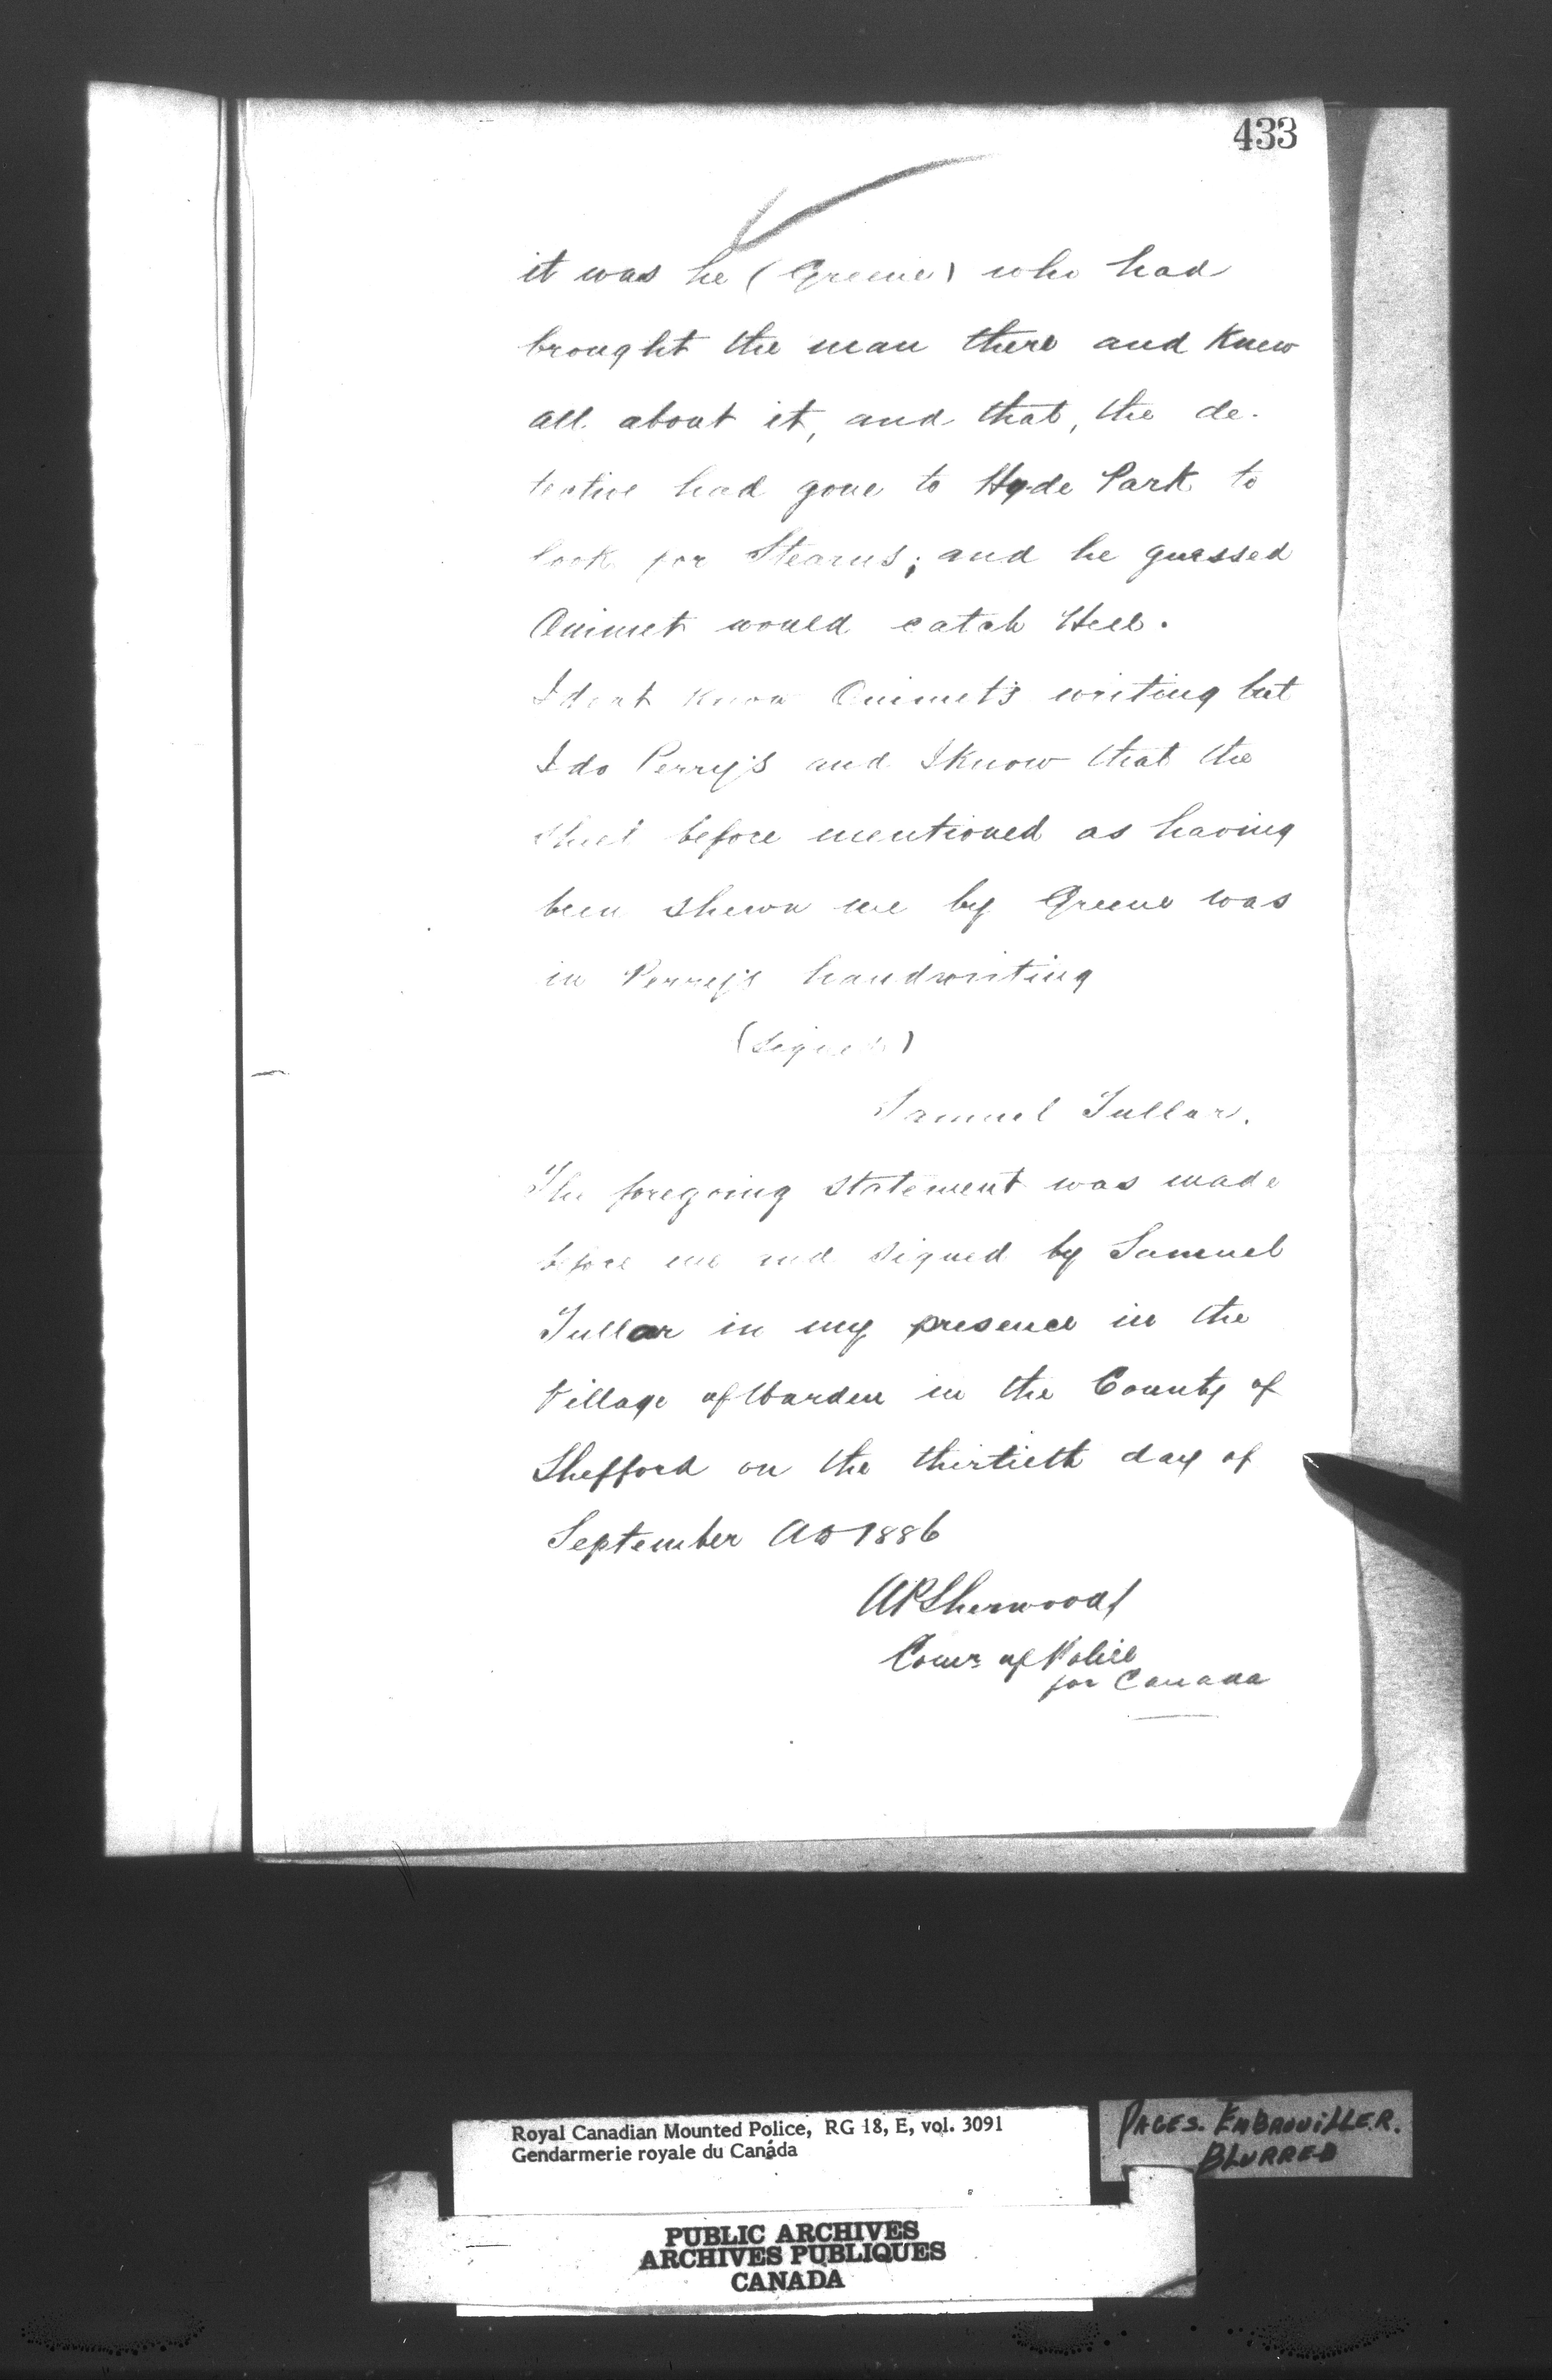 433
it was he (Greene) who had
brought the man there and Knew
all about it, and that, the de-
tective had gone to Hyde Park to
look for Stearns; and he guessed
Ouimet would catch Hell.
I dont know Ouimet's writing but
I do Perry's and I Know that the
sheet before mentioned as having
been shewn me by Greene was
in Perry's handwriting
(Signed)
Samuel Tullar.
The foregoing statement was made
before me and signed by Samuel
Tullar in my presence in the
Village of Warden in the County of
Shefford on the thirtieth day of
September AD 1886
APSherwood
Comr of Police
for Canada
Royal Canadian Mounted Police, RG 18, E, vol. 3091
Gendarmerie royale du Canada
PAGES. EMBROUILLER.
BLURRED
PUBLIC ARCHIVES
ARCHIVES PUBLIQUES
CANADA